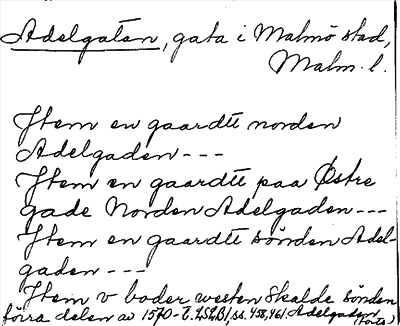 Adelgatan, gata i Malmö stad,
Malm. l.
Item en gaardtt norden
Adelgaden ---
Item en gaardtt paa Østre
gade Norden Adelgaden ---
Item en gaardtt sönden Adel-
gaden ---
Item v boder westen Skalde sönden
förra delen av 1570-t. LSLB1, ss. 458, 461. Adelgaden
(forts)